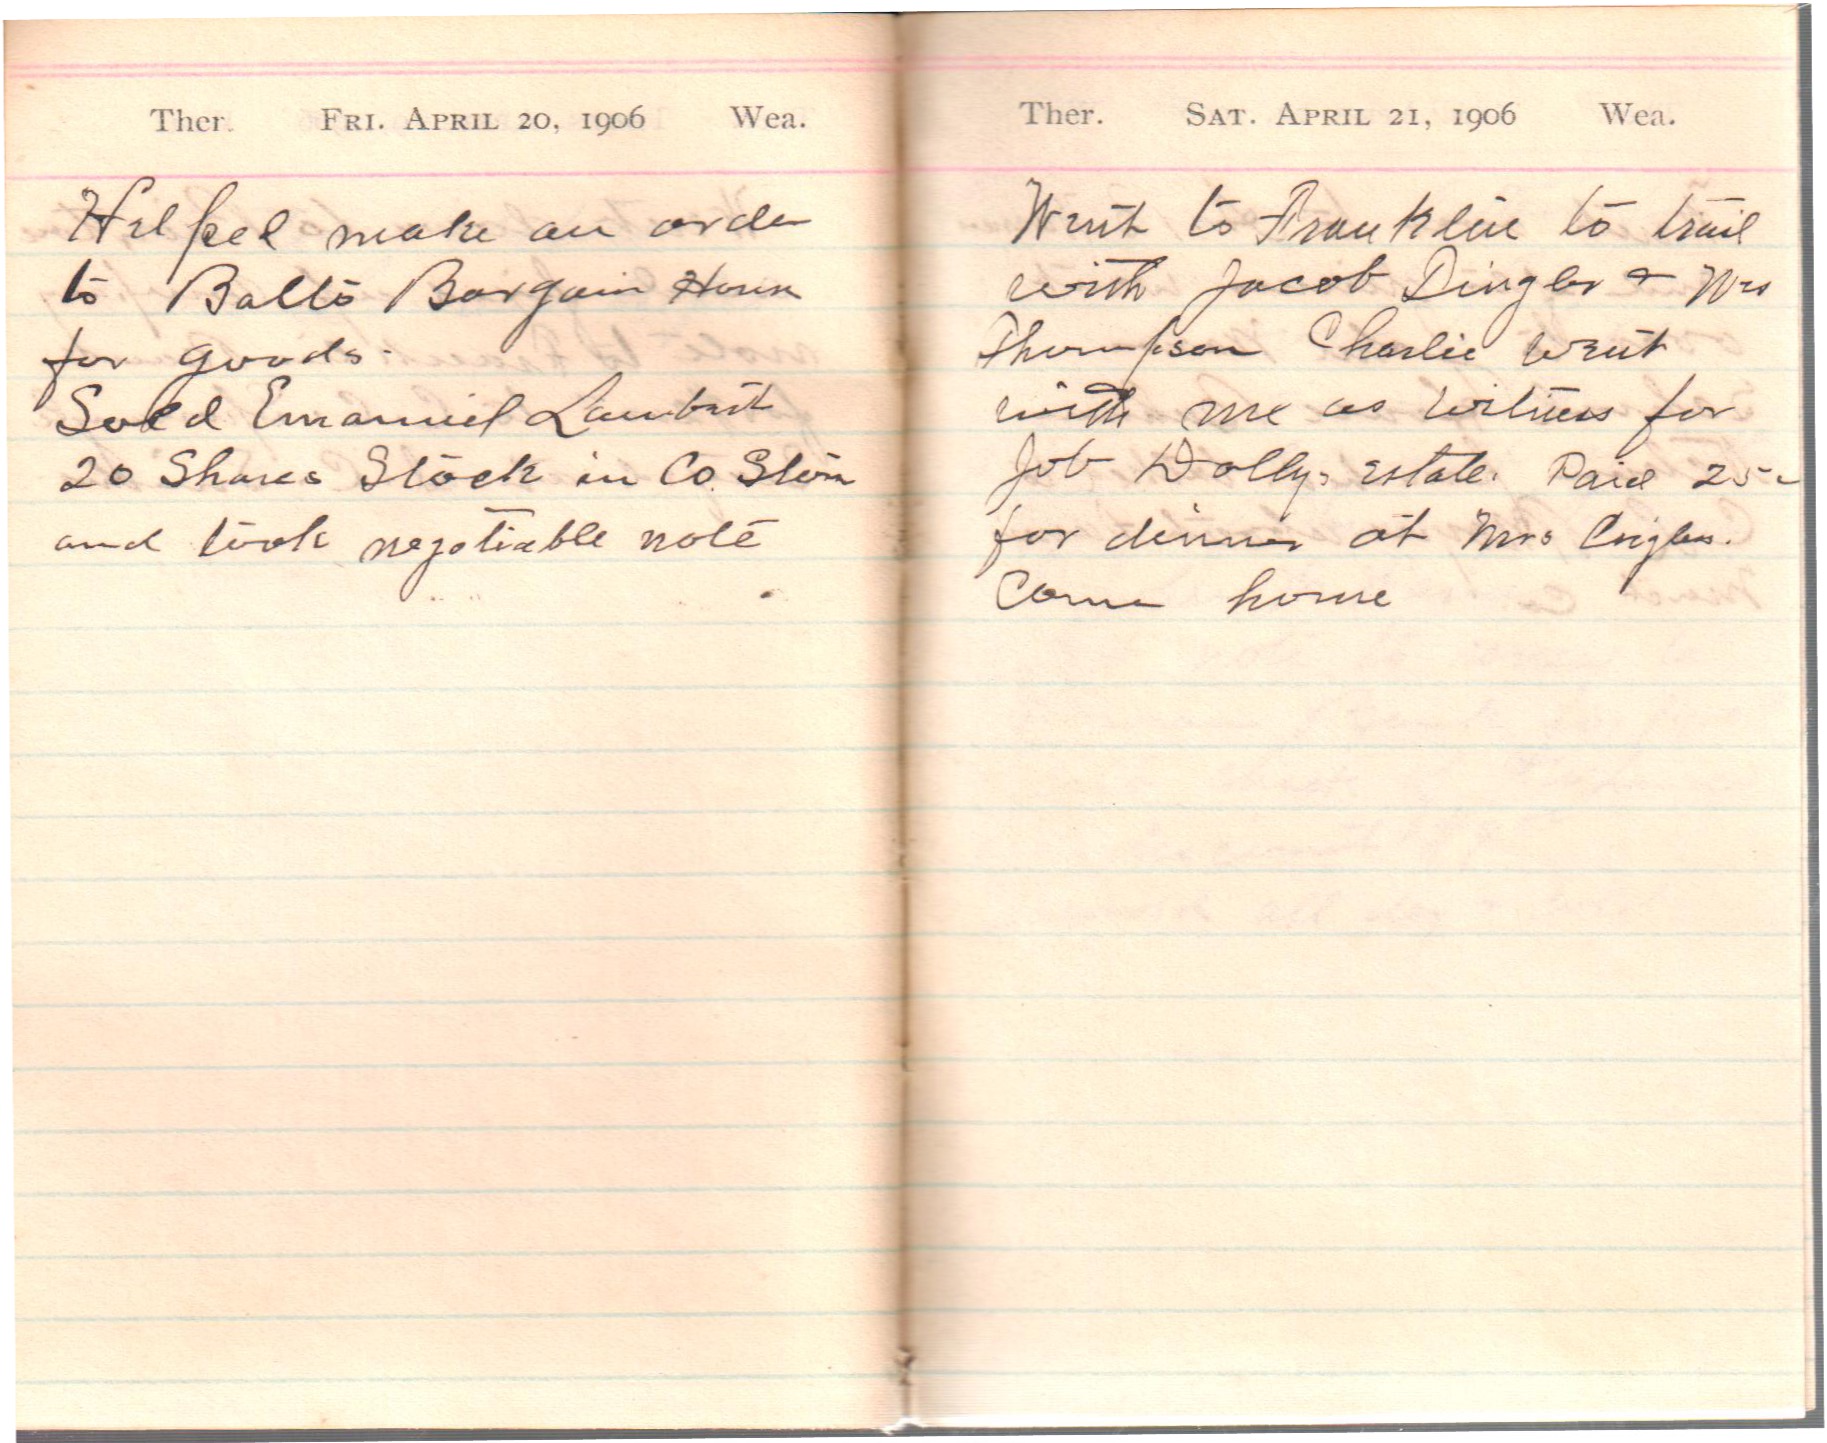 Ther. FRI. APRIL 20, 1906 Wea.
Helped make an order
to Balto Bargain House
for goods.
Sold Emanuel Lambert
20 Shares Stock in Co. Store
and took negotiable note
Ther. SAT. APRIL 21, 1906 Wea.
Went to Franklin to trail
with Jacob Dingler & Mrs
Thompson Charlie went
with me as witness for
Job Dollys estate. Paid 25c
for dinner at Mrs
Came home